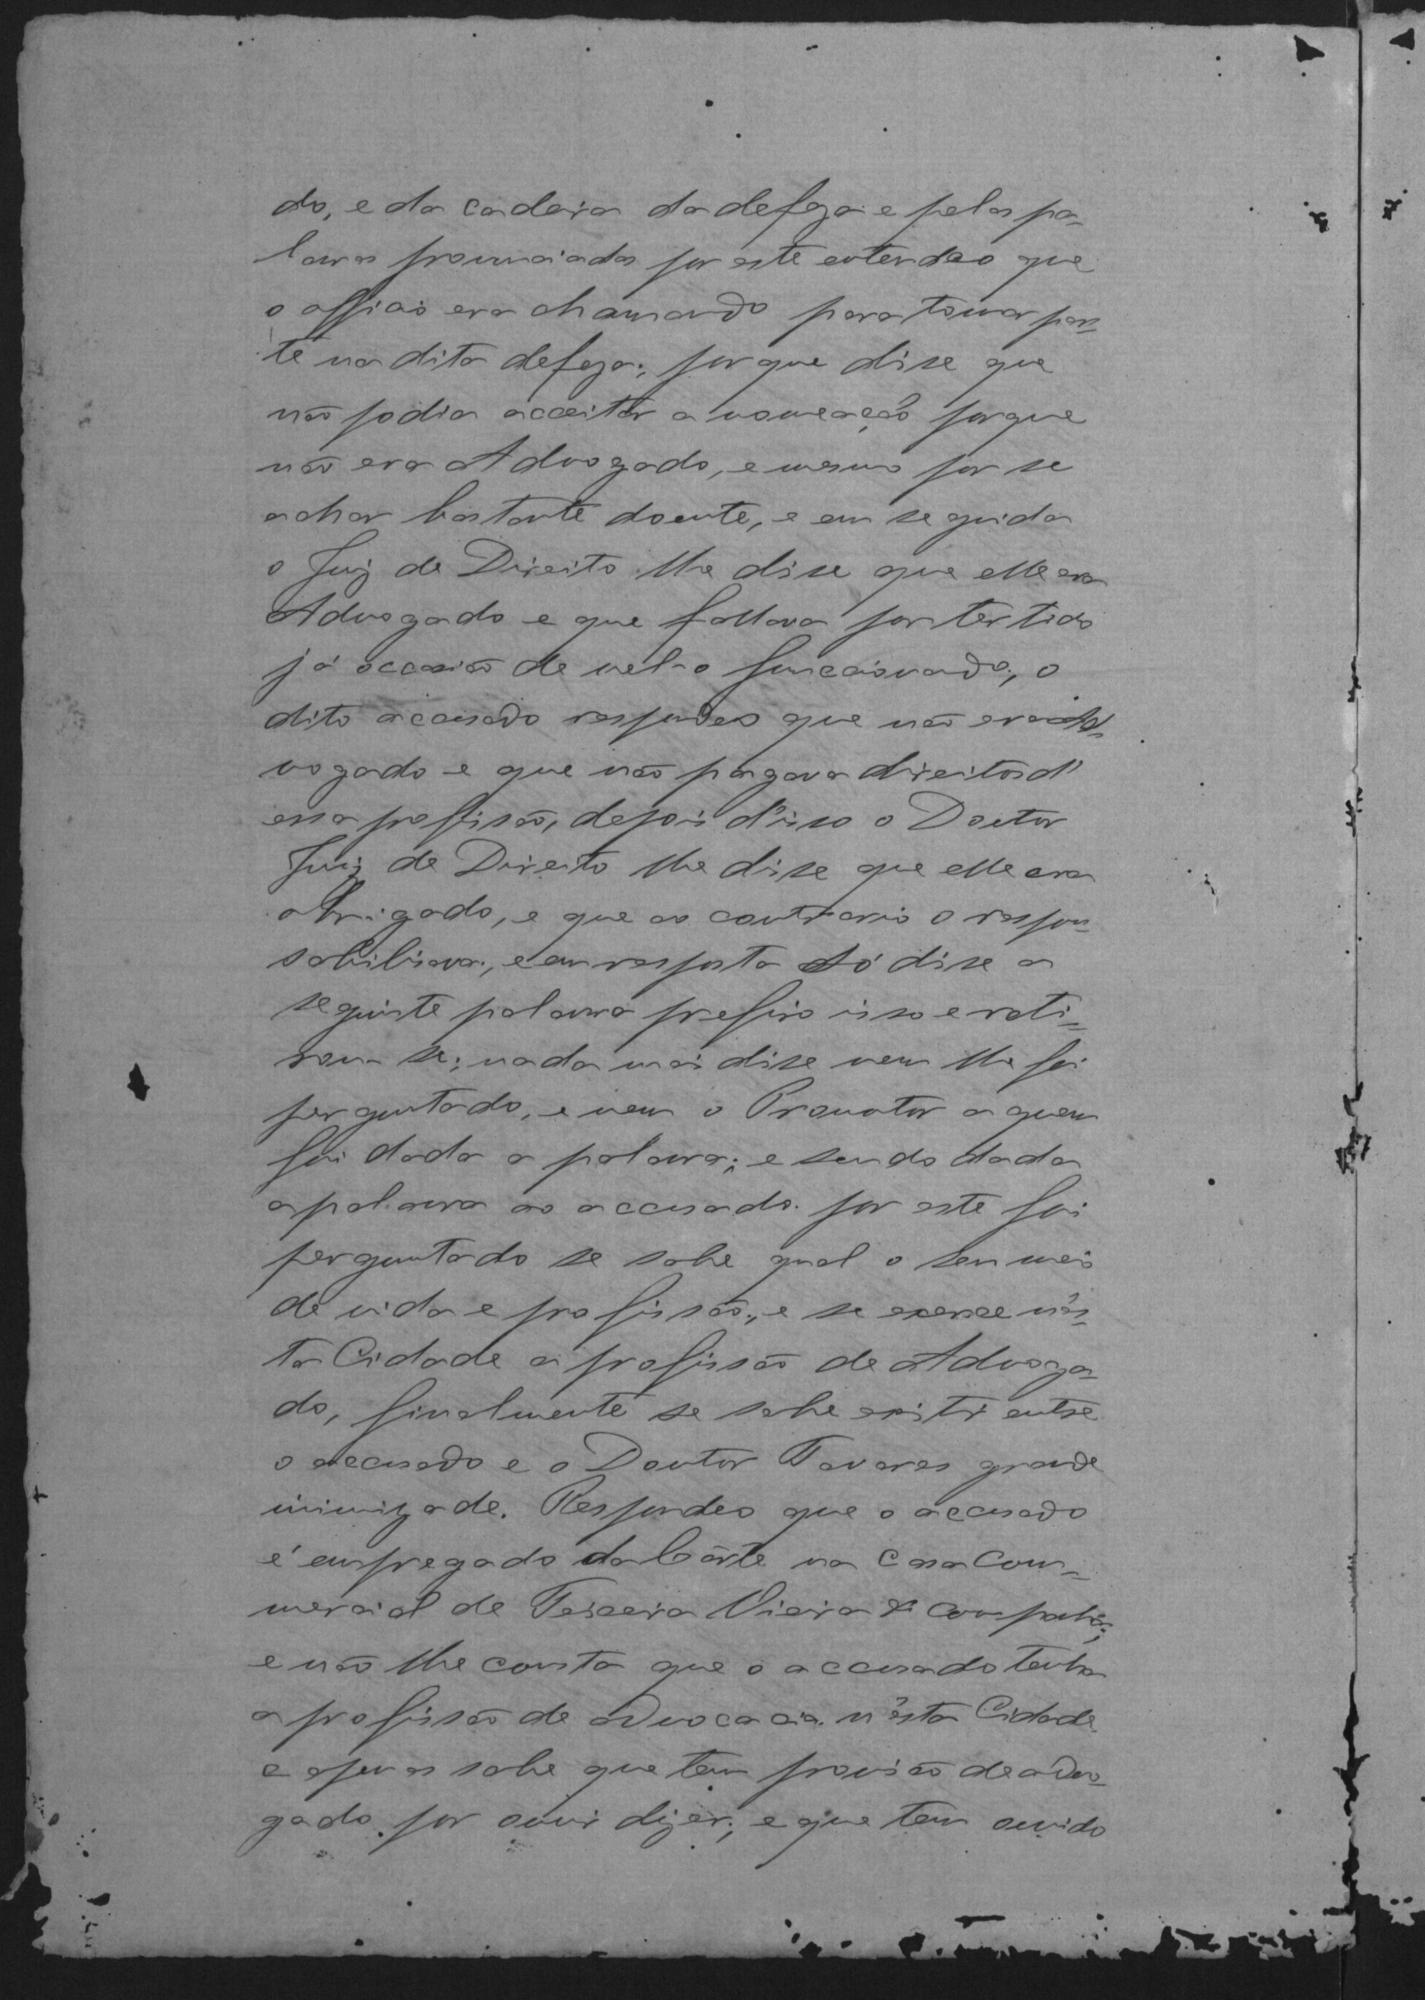 do, e da cadeira da defeza e pelas pa-
lavras pronunciadas por este entendeo que
o assiao era chamando para tomar par-
te na dita defeza; por que disse que
não podia acceitar a nomeação porque
não era Advogado, e mesmo por se
achar bastante doente, e em seguida
o Juiz de Direito lhe disse que elle era
Advogado e que fallava por ter tido
já occasião de vel-o funccionando; o
dito accusado respondeo que não era Ad-
vogado e que não pagava direitos d'
essa profissão, depois d'isso o Doutor
Juiz de Direito lhe disse que elle era
obrigado, e que ao contrario o respon-
sabilisava; e em resposta só disse a
seguinte palavra prefiro isso e reti-
rou-se; nada mais disse nem lhe foi
perguntado, e nem o Promotor a quem
foi dada a palavra; e sendo dada
a palavra ao accusado por este foi
perguntado se sabe qual o seu meio
de vida e profissão, e se exerce n'es-
ta Cidade a profissão de Advoga-
do, finalmente se sabe existir entre
o accusado e o Doutor Tavares grande
inimizade. Respondeo que o accusado
é empregado da Côrte na casa Com-
mercial de Teixeira Vieira & Companhia;
e não lhe consta que o accusado tenha
a profissão de advocacia n'esta Cidade
e apenas sabe que tem provisão de advo-
gado por ouvir dizer; e que tem ouvido